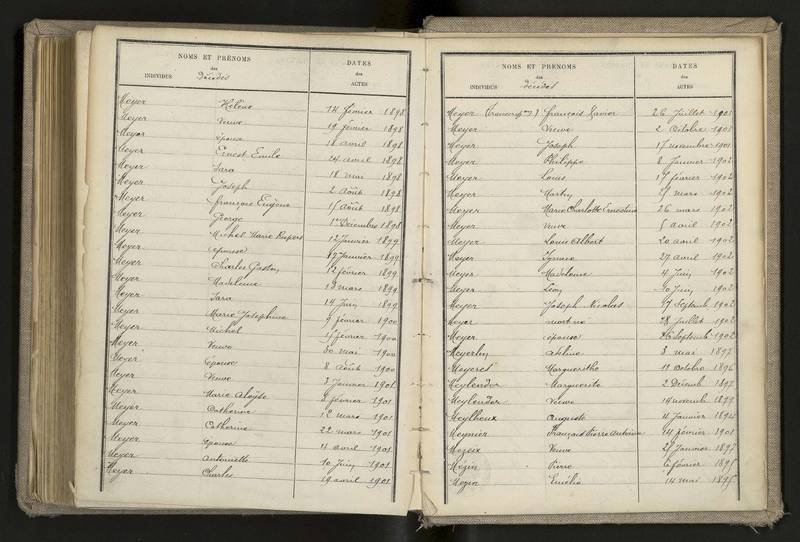 NOMS ET PRÉNOMS
des
INDIVIDUS décédés
DATES
des
ACTES
Meyer Hélène 14 février 1898
Meyer Veuve 19 février 1898
Meyer épouse 18 avril 1898
Meyer Ernest Emile 24 avril 1898
Meyer Sara 18 mai 1898
Meyer Joseph 2 Août 1898
Meyer françois Eugène 11 Août 1898
Meyer George 1er Décembre 1898
Meyer Michel Marie 12 Janvier 1899
Meyer épouse 17 Janvier 1899
Meyer Charles Gaston 12 février 1899
Meyer Madeleine 13 mars 1899
Meyer Sara 14 Juin 1899
Meyer Marie Joséphine 9 février 1900
Meyer Michel février 1900
Meyer Veuve 30 mai 1900
Meyer épouse 8 Août 1900
Meyer Veuve 3 Janvier 1901
Meyer Marie Aloÿse 8 février 1901
Meyer Catherine 12 mars 1901
Meyer Catherine 22 mars 1901
Meyer épouse 11 avril 1901
Meyer Antoinette 10 Juin 1901
Meyer Charles 19 avril 1901
NOMS ET PRÉNOMS
des
INDIVIDUS décédés
DATES
des
ACTES
Meyer françois Xavier 26 Juillet 1901
Meyer Veuve 2 Octobre 1901
Meyer Joseph 17 novembre 1901
Meyer Philippe 8 Janvier 1902
Meyer Louis 17 février 1902
Meyer Martin 21 mars 1902
Meyer Marie Charlotte Ernestine 26 mars 1902
Meyer veuve 5 avril 1902
Meyer Louis Albert 20 avril 1902
Meyer Ignace 27 avril 1902
Meyer Madeleine 4 Juin 1902
Meyer Léon 10 Juin 1902
Meyer Joseph Nicolas 17 Septemb 1902
Meyer mort né 28 Juillet 1902
Meyer épouse 26 Septemb 1902
Meyerlin Adeline 3 mai 1897
Meyeret Marguerithe 19 Octobre 1896
Meylender Marguerite 2 Décemb 1897
Meylender Veuve 14 novemb 1899
Meylheux Auguste 4 Janvier 1894
Meynier François Pierre Antoine 14 février 1901
Mezeix Veuve 21 Janvier 1897
Mezin Pierre 6 février 1895
Mezin Emélie 14 mai 1895